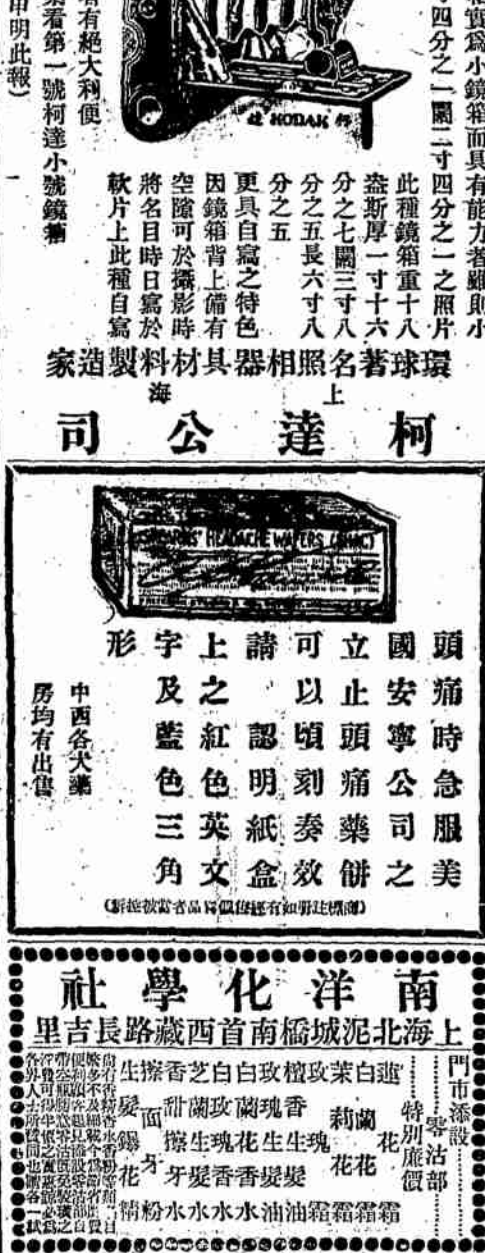 實爲小鏡箱而具有能力者雖則小
寸四分之一闊二寸四分之一之照片
此種鏡箱重十八
盎斯厚一寸十六
分之七闊三寸八
分之五長六寸八
分之五
更具自寫之特色
因鏡箱背上備有
空隙可於攝影時
將名目時日寫於
軟片上此種自寫
KODAK
有絕大利便
看第一號柯達小號鏡箱
申明此報）
環球著名照相器具材料製造家
上海
柯達公司
HEADACHE WAFERS
頭痛時急服美
國安寧公司之
立止頭痛藥餅
可以頃刻奏效
請 認明紙盒
上之紅色英文
字及藍色三角
形
中西各大藥
房均有出售
南洋化學社
上海北泥城橋南首西藏路長吉里
門市添設
零沽部
特別廉價
蓮花霜
白蘭花霜
茉莉花霜
玫瑰霜
檀香生髮油
玫瑰生髮油
白蘭花香水
白玫瑰香水
芝蘭生髮水
香甜擦牙水
擦面牙粉
生髮錫花精